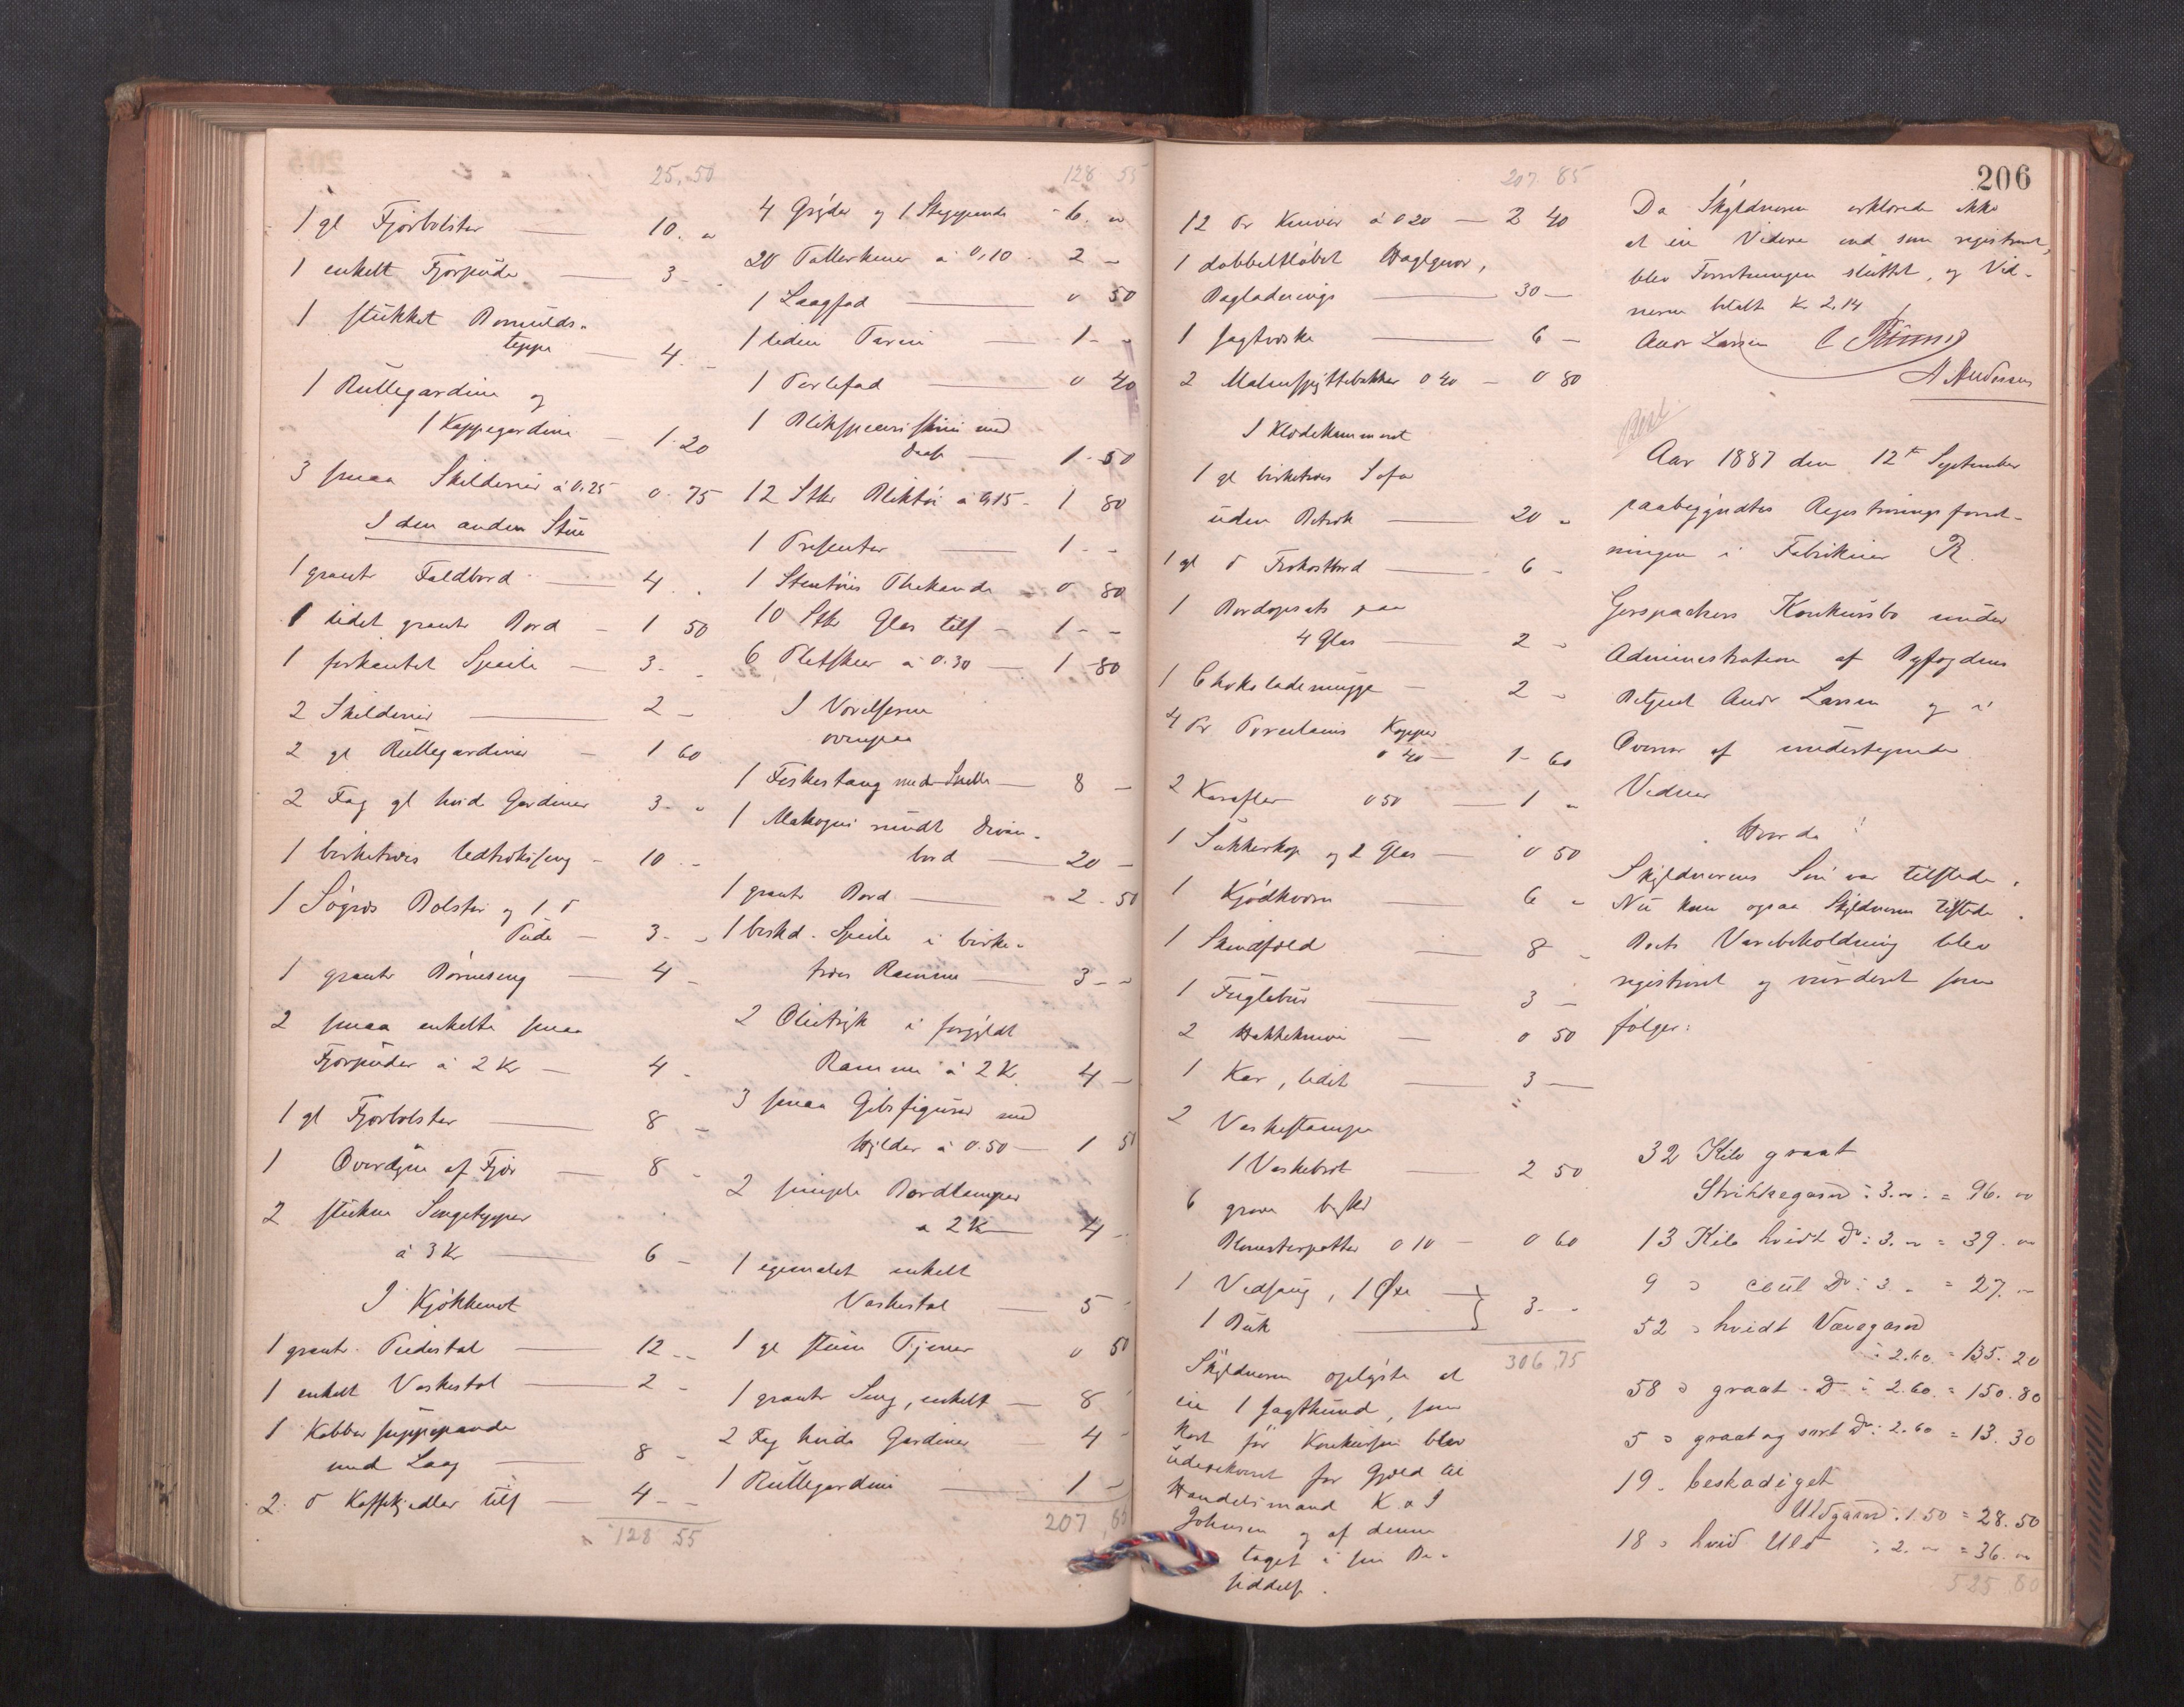 25.50
1 gl Fjørbolster — 10. "
1 enkelt Fjørpude — 3 -
1 stukket Bomulds-
teppe — 4. -
1 Rullegardin og
1 Kappegardin — 1. 20
3 smaa Skilderier à 0.25 0. 75
I den anden Stue
1 grant Faldbord — 4. .
1 lidet grant Bord — 1 50
1 firkantet Speile — 3. -
2 Skilderier — 2 -
2 gl Rullegardiner — 1 60
2 Fag gl hvide Gardiner 3. "
1 birketræs Udtræksseng — 10 -
1 Søgræs Bolster og 1 d
Pude — 3. -
1 grant Børneseng — 4 -
2 smaa enkelte smaa
Fjørpuder à 2 Kr — 4 -
1 gl Fjørbolster — 8 -
1 Overdyne af Fjør — 8 -
2 stukne Sengetepper
à 3 Kr — 6 -
I Kjøkkenet
1 grant — 12 - -
1 enkelt Vaskestol — 2 -
1 Kobber suppepande
med Laag — 8 -
2 d Kaffekjedler tils — 4 - -
128 55
128 55
4 Gryder og 1 Stegepande - 6. "
20 Tallerkener à 0,10 . 2 -
1 Laagfad — 0 50
1 liden Terin — 1 - -
1 — 0 40
1 med
— 1 - 50
12 Stkr Bliktøi à 0.15 - 1 80
1 Presenter — 1 - -
1 Stentøis Thekande 0 80
10 Stkr Glas tils — 1 - -
6 Pletskeer à 0.30 — 1 - 80
I Værelserne
ovenpaa
1 Fiskestang med Snelle — 8 -
1 Mahogni rundt Divan-
bord — 20 -
1 grant Bord — 2 - 50
1 beskd. Speile i birke-
træs Ramme — 3 - -
2 Olietryk i forgyldt
Ramme à 2 Kr 4 -
3 smaa Gibsfigurer med
Hylder à 0.50 — 1 50
2 simple Bordlamper
à 2 Kr 4 -
1 egemalet enkelt
Vaskestol — 5 -
1 gl stum Tjener 0 50
1 grant Seng, enkelt — 8
2 Fag hvide Gardiner 4 -
1 Rullegardin — 1 -
207
207 85
12 Pr Knive à 0 20 — 2 40
1 dobbeltløbet Haglgevær,
Bagladnings — 30 —
1 Jagtvæske — 6 -
2 0 40 — 0 80
I Klædekammeret
1 gl birketræs Sofa
uden Betræk — 20 "
1 gl d Frokostbord — 6 -
1 Bordopsats paa
4 Glas — 2 -
1 Chokolademugge — 2 -
4 Pr Porcelains Kopper
0 40 — 1 - 60
2 Karafler 0 50 — 1 "
1 Sukkerkop og 2 Glas — 0 50
1 Kjødkværn — 6 "
1 Skindfæld — 8 -
1 Fuglebur — 3 -
2 Hakkeknive — 0 50
1 Kar, lidet — 3 —
2 Vaskestamper
1 Vaskebræt — 2 50
6
Blomsterpotter 0 10 — 0 60
1 Vedsaug, 1 Øxe
1 Buk } 3 - -
306.75
Skyldneren oplyste at
eie 1 Jagthund, som
kort før Konkursen blev
for Gjæld til
Handelsmand K. o I
Johnsen og af denne
taget i sin Be-
siddelse.
206
Da Skyldneren erklærede ikke
at eie Videre end som registreret,
blev Forretningen sluttet, og Vid-
nerne betalt Kr 2,14
Andr Larsen
A Andersen
Aar 1887 den 12te September
paabegyndtes Registreringsforret-
ningen i Fabrikeier R.
Gerspachers Konkursbo under
Administration af Byfogdens
Betjent Andr Larsen og i
Overvær af undertegnede
Vidner
Hvorda!
Skyldnerens Søn var tilstede.
Nu kom ogsaa Skyldneren tilstede.
Boets Varebeholdning blev
registreret og vurderet som
følger:
32 Kilo graat
Strikkegarn à 3. " = 96. "
13 Kilo hvidt Do à 3. " = 39. "
9 " Do à 3 " = 27. "
52 " hvidt Vævegarn
à 2.60 = 135. 20
58 " graat D à 2.60. = 150.80
5 " graat og sort Do à 2.60 = 13. 30
19 - beskadiget
Uldgarn à 1.50 = 28.50
18 " hvid Uld à 2. " = 36. "
525.80